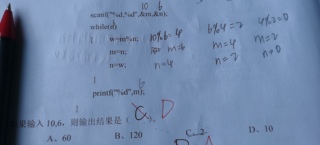 10 6
scanf("%d,%d",&m,&n);
while(n)
{ w=m%n; 10%6=4 6%4=2 4%2=0
m=n; m=6 m=4 m=2
n=w; n=4 n=2 n=0
}
printf("%d",m);
果输入 10,6，则输出结果是（ C、D ）。
A、60 B、120 C、2 D、10